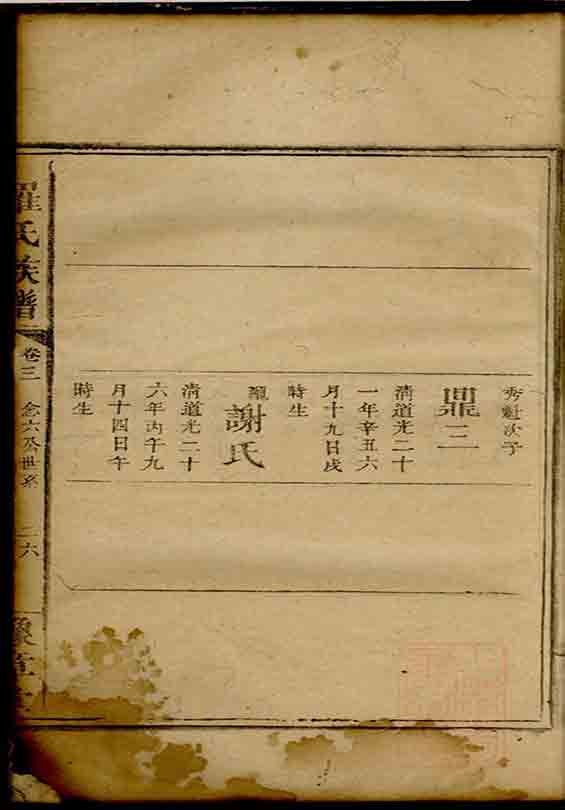 秀魁次子
鼎三
清道光二十
一年辛丑六
月十九日戌
時生
謝氏
清道光二十
六年丙午九
月十四日午
時生
羅氏族譜
卷三
念六公世系
二六
豫章堂